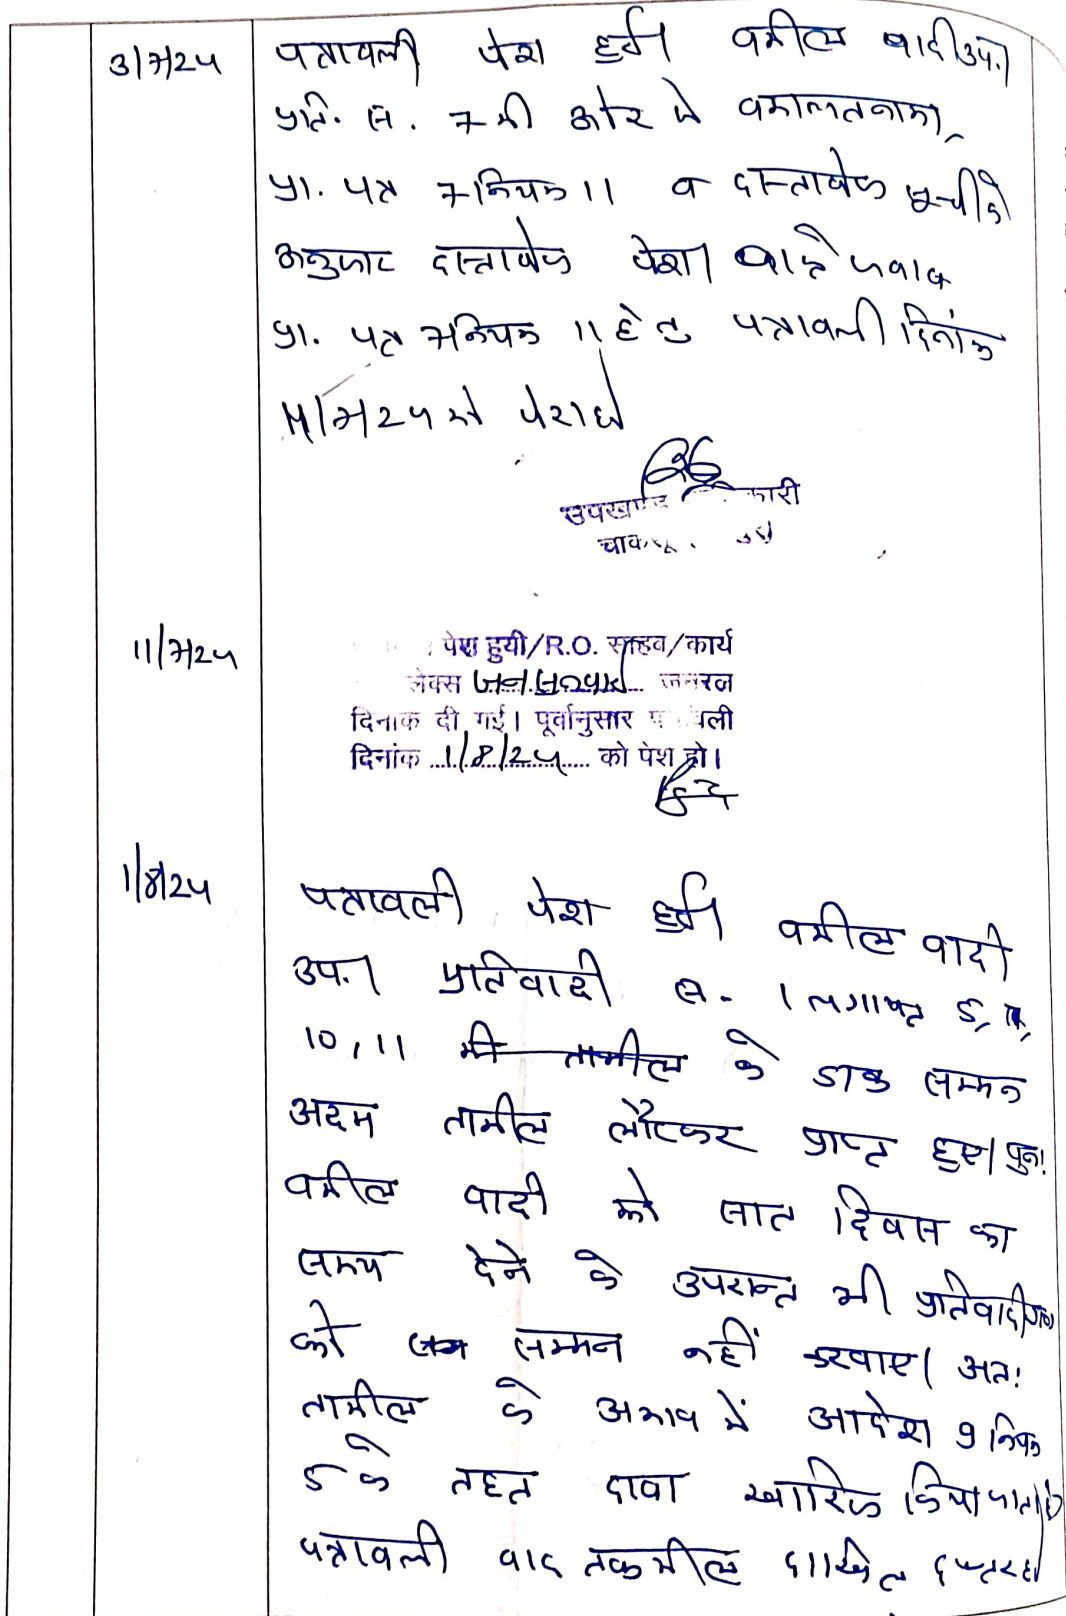 3/7/24 पत्रावली पेश हुई। वकील वादी उप.।
प्रति. सं. 7 की ओर से वकालतनामा,
प्रा. पत्र 7 नियम 11 व दस्तावेज सूची के
अनुसार दस्तावेज पेश। वास्ते जवाब
प्रा. पत्र 7 नियम 11 हेतु पत्रावली दिनांक
11/7/24 को पेश हो
उपखण्ड कारी
चाकसू
11/7/24 पेश हुयी/R.O. साहब/कार्य
जन सुनवाई
दिनांक दी गई। पूर्वानुसार
दिनांक 1/8/24 को पेश हो।
1/8/24 पत्रावली पेश हुई। वकील वादी
उप.। प्रतिवादी सं. 1 लगायत 5,
10, 11 की तामील के डाक सम्मन
अदम तामील लौटकर प्राप्त हुए। पुनः
वकील वादी को सात दिवस का
समय देने के उपरान्त भी प्रतिवादीगण
को सम्मन नहीं करवाए। अतः
तामील के अभाव में आदेश 9 नियम
5 के तहत दावा खारिज किया जाता है
पत्रावली बाद तकमील दाखिल दफ्तर हो